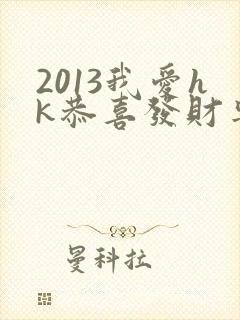 2013我愛h
k恭喜發財
曼科拉